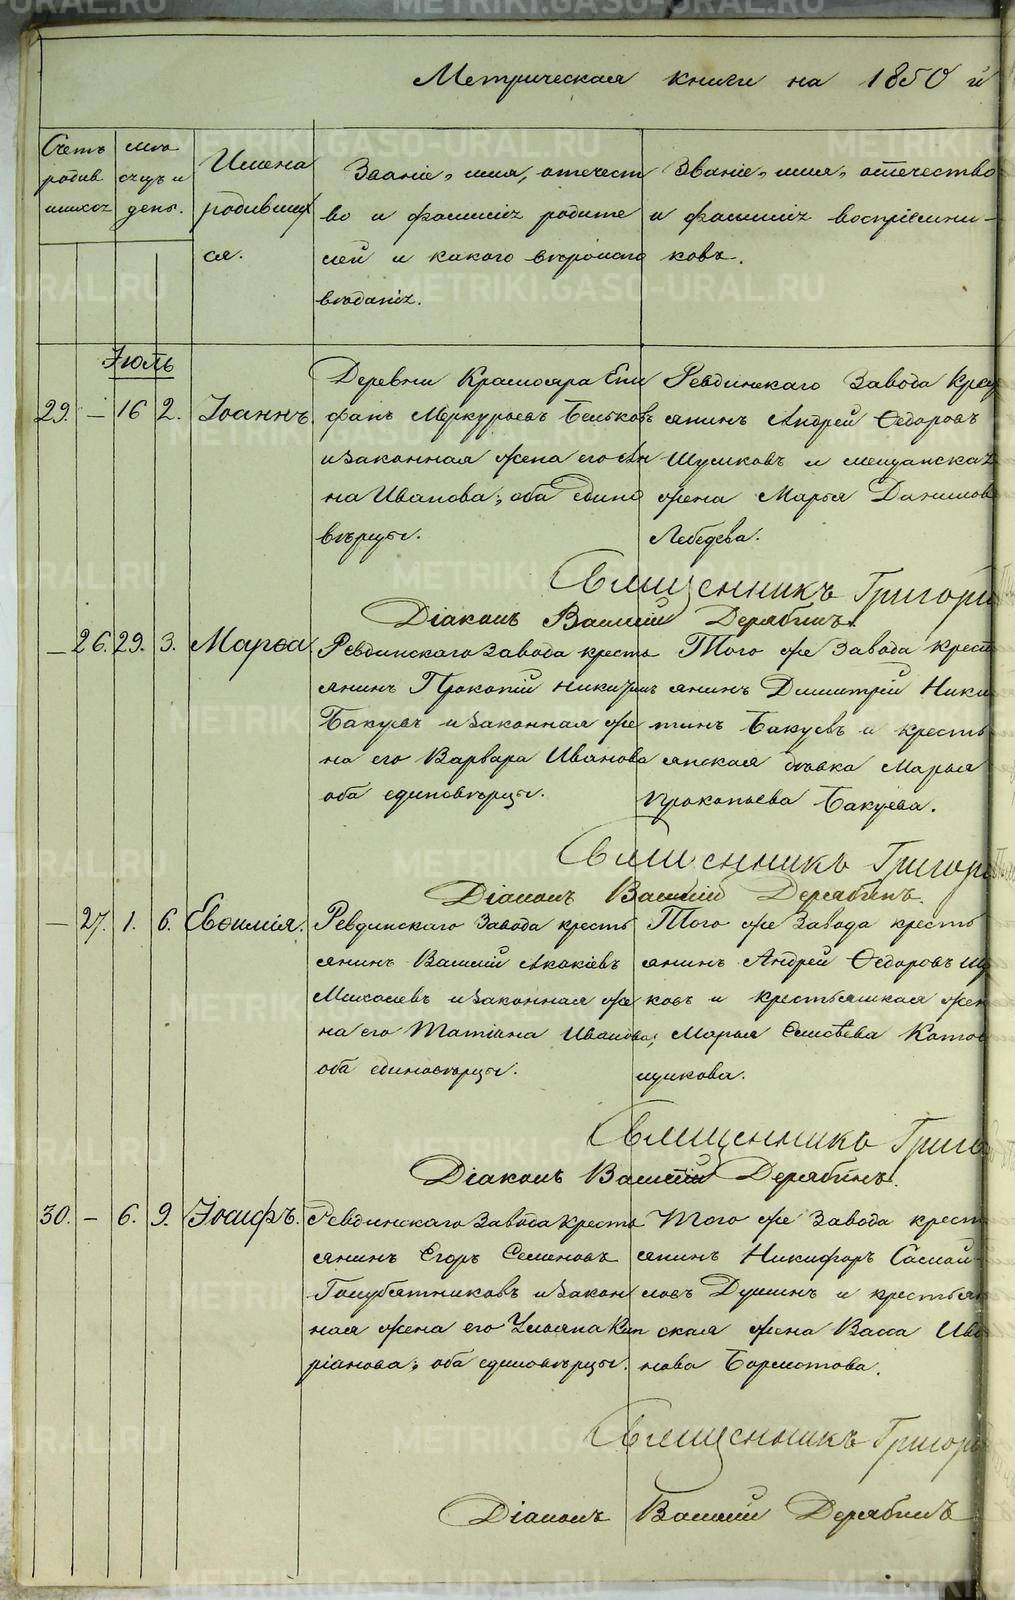 Метрическая книги на 1850 й
Счетъ родив шихся
мѣсяцъ и день.
Имена родившихся.
Званіе, имя, отечест
во и фамиліи родите
лей и какого вѣроисп
вѣданія.
Званіе, имя, отечество
и фамиліи воспріемни-
ковъ.
Іюль
29. — 16 2. Іоаннъ.
Деревни Краснояра Епи
фанъ Меркурьевъ Бѣльковъ
и законная жена его Ан
на Иванова; оба едино
вѣрцы.
Ревдинскаго Завода крес
янинъ Андрей Ѳедоровъ
Шумковъ и мещанская
жена Марья Данилов
Лебедева.
Священникъ Григорі
Діаконъ Василій Дерябинъ.
— 26. 29. 3. Марѳа.
Ревдинскаго Завода кресть
янинъ Прокопій Никитинъ
Бакуевъ и законная же
на его Варвара Иванова
оба единовѣрцы.
Того же Завода крест
янинъ Димитрій Ники
тинъ Бакуевъ и кресть
янская дѣвка Марья
Прокопьева Бакуева.
Священникъ Григорі
Діаконъ Василій Дерябинъ.
— 27. 1. 6. Евѳимія.
Ревдинскаго Завода кресть
янинъ Василій Акакіевъ
Михалевъ и законная же
на его Татіана Иванова;
оба единовѣрцы.
Того же Завода кресть
янинъ Андрей Ѳедоровъ Шу
ковъ и крестьянская жен
Марья Елисѣева Котов
щикова.
Священникъ Григо
Діаконъ Василій Дерябинъ.
30. — 6. 9. Іосифъ.
Ревдинскаго Завода кресть
янинъ Егоръ Семеновъ
Голубятниковъ и закон
ная жена его Ульяна Кип
ріанова; оба единовѣрцы.
Того же Завода крест
янинъ Никифоръ Самой-
ловъ Душинъ и крестьян
ская жена Васса Ива
нова Бормотова.
Священникъ Григорі
Діаконъ Василій Дерябинъ
METRIKI.GASO-URAL.RU